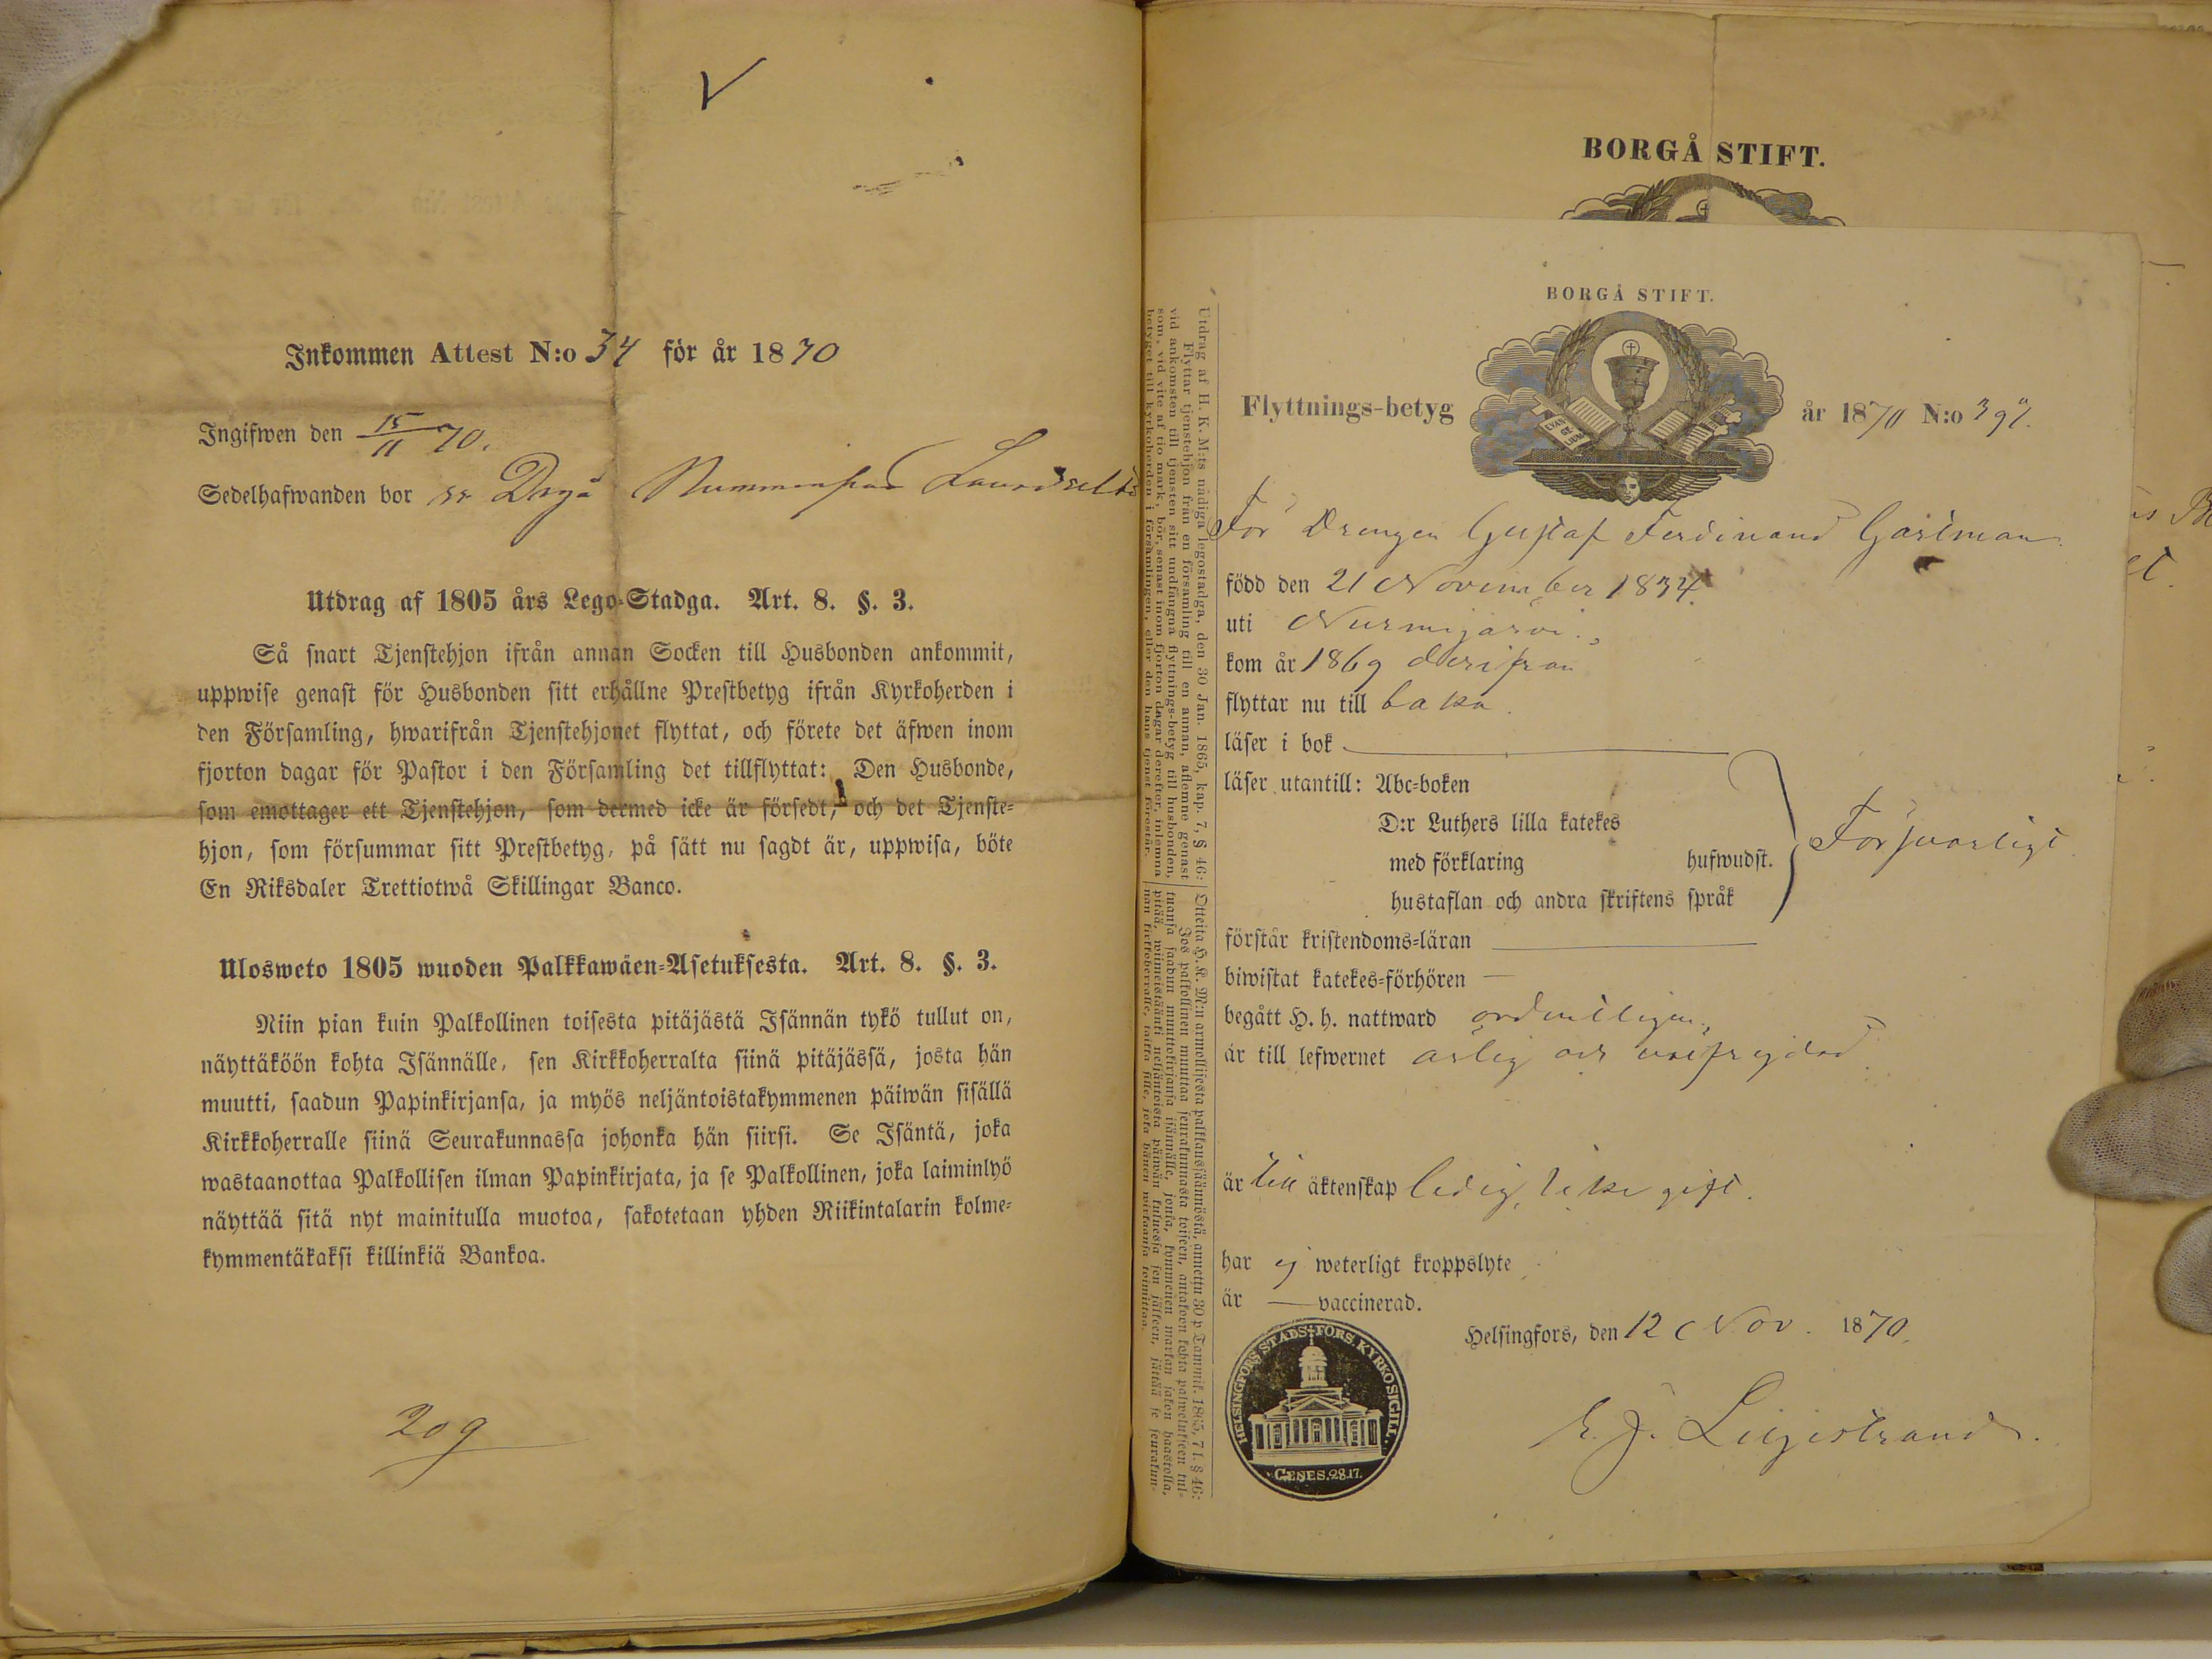 Inkommen Attest N:o 34 för år 1870
Ingifwen den 15/11 70.
Sedelhafwanden bor
Utdrag af 1805 års Lego-Stadga. Art. 8. §. 3.
Så snart Tjenstehjon ifrån annan Socken till Husbonden ankommit,
uppwise genast för Husbonden sitt erhållne Prestbetyg ifrån Kyrkoherden i
den Församling, hwarifrån Tjenstehjonet flyttat, och förete det äfwen inom
fjorton dagar för Pastor i den Församling det tillflyttat: Den Husbonde,
som emottager ett Tjenstehjon, som dermed icke är försedt, och det Tjenste-
hjon, som försummar sitt Prestbetyg, på sätt nu sagdt är, uppwisa, böte
En Riksdaler Trettiotwå Skillingar Banco.
Ulosweto 1805 wuoden Palkkawäen-Asetuksesta. Art. 8. §. 3.
Niin pian kuin Palkollinen toisesta pitäjästä Isännän tykö tullut on,
näyttäköön kohta Isännälle, sen Kirkkoherralta siinä pitäjässä, josta hän
muutti, saadun Papinkirjansa, ja myös neljäntoistakymmenen päiwän sisällä
Kirkkoherralle siinä Seurakunnassa johonka hän siirsi. Se Isäntä, joka
wastaanottaa Palkollisen ilman Papinkirjata, ja se Palkollinen, joka laiminlyö
näyttää sitä nyt mainitulla muotoa, sakotetaan yhden Riikintalarin kolme-
kymmentäkaksi killinkiä Bankoa.
209
BORGÅ STIFT.
BORGÅ STIFT.
EVAN
GE-
LIUM
Flyttnings-betyg år 1870 N:o
För Drengen Gustaf Ferdinand Gastman
född den 21 November 1834
uti Nurmijärvi.
kom år 1869 derifrån
flyttar nu till baka.
läser i bok
läser utantill: Abc-boken
D:r Luthers lilla katekes
med förklaring hufwudst.
hustaflan och andra skriftens språk
Försvarligt
förstår kristendoms-läran
biwistat katekes-förhören
begått H. h. nattward ordentligen,
är till lefwernet ärlig och välfrejdad
är till äktenskap ledig, icke gift.
har ej weterligt kroppslyte
är vaccinerad.
Helsingfors, den 12 Nov. 1870.
HELSINGFORS STADS FÖRS. KYRKOSIGILL.
GENES. 28.17.
Utdrag af H. K. M:ts nådiga legostadga, den 30 Jan. 1865, kap. 7, § 46:
Flyttar tjenstehjon från en församling till en annan, aflemne genast
vid ankomsten till tjensten sitt undfångna flyttnings-betyg till husbonden,
som, vid vite af tio mark, bör, senast inom fjorton dagar derefter, inlemna
betyget till kyrkoherden i församlingen, eller den hans tjenst förestår.